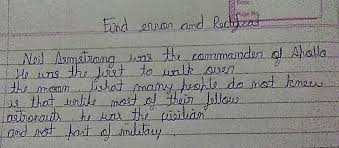 Find error and
Neil Armstrong was the commander of Apollo
He was the first to walk over
the moon. What many people do not know
is that unlike most of their fellow
astronauts he was the civilian
and not part of military.